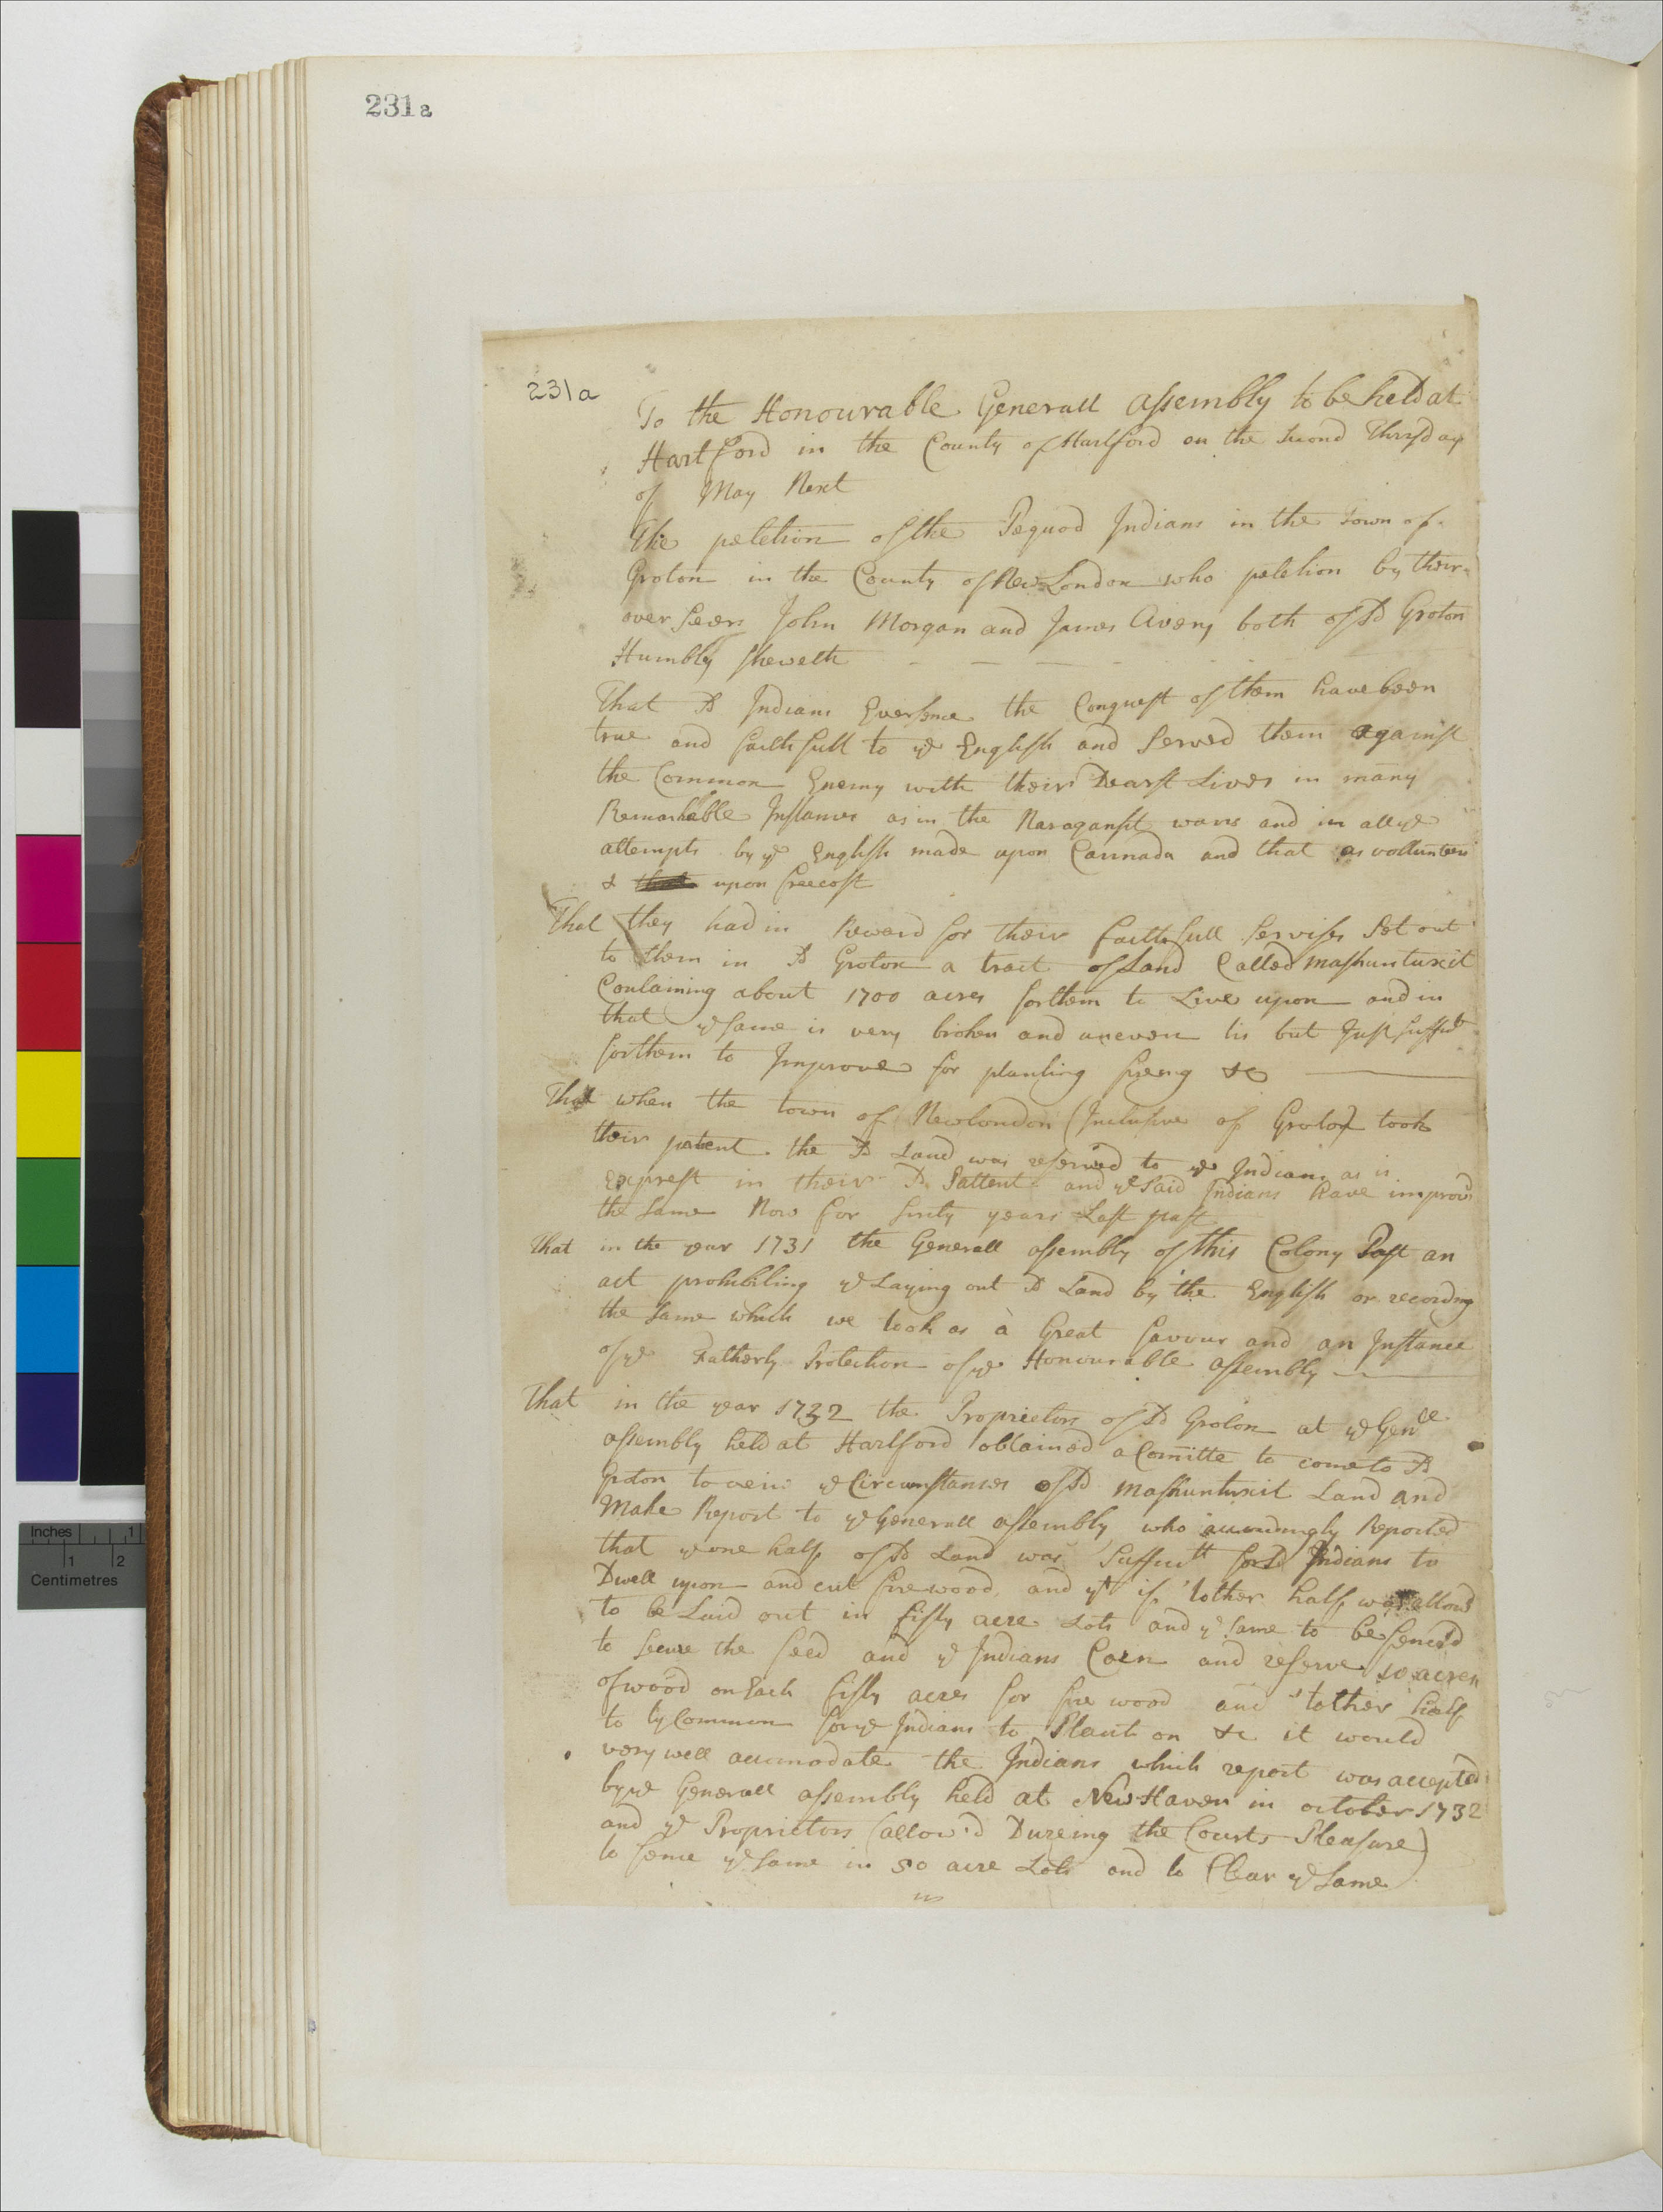 231a
231a
To the Honourable Generall assembly to be held at
Hartford in the County of Hartford on the second Thursday
of May Next
The petetion of the Pequod Indians in the town of
Groton in the County of New London who petetion by their
over seers John Morgan and James Avery both of sd Groton
Humbly sheweth
That sd Indians Ever since the Conquest of them have been
true and faithfull to ye English and served them against
the Common Enemy with their Dearst Lives in many
Remarkable Instances as in the Naraganset wars and in all ye
attempts by ye English made upon Cannada and that as vollunteers
& upon free cost
That they had in Reward for their faithfull servises set out
to them in sd Groton a tract of Land Called mashuntuxit
Containing about 1700 acres for them to Live upon and in
that ye same is very broken and uneven tis but Just suffict
for them to Improve for planting fireing &c
That when the town of New London (Inclusive of Groton) took
their patent the sd Land was reserved to ye Indians as is
exprest in their sd Pattent and ye said Indians have improvd
the same Now for sixty years Last past
That in the year 1731 the Generall assembly of this Colony Past an
act prohibiting ye Laying out sd Land by the English or recording
the same which we took as a Great favour and an Instance
of ye Fatherly Protection of ye Honourable assembly
That in the year 1732 the Proprietors of sd Groton at ye Genll
assembly held at Hartford obtained a Comitte to come to sd
Groton to veiw ye Circumstances of sd mashuntuxit Land and
Make Report to ye Generall assembly who accordingly Reported
that ye one half of sd Land was Sufficitt for sd Indians to
Dwell upon and cut fire wood and yt if 'tother half was allowd
to be Laid out in fifty acre Lots and ye same to be fencd
to secure the feed and ye Indians Corn and reserve 10 acres
of wood on Each fifty acres for fire wood and 'tother half
to ly Common for ye Indians to Plant on &c it would
very well accomodate the Indians which report was accepted
by ye Generall assembly held at New Haven in october 1732
and ye Proprietors (allow'd Dureing the Courts Pleasure)
to fence ye same in 50 acre Lots and to Clear ye same